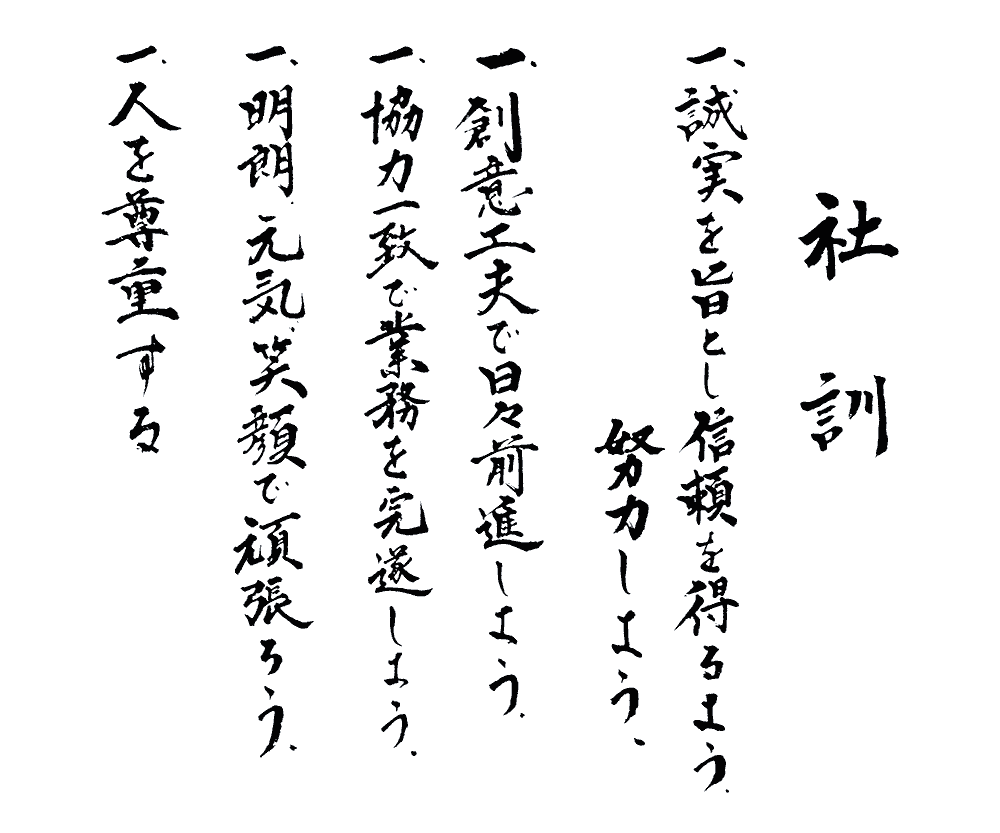 社訓
一、誠実を旨とし信頼を得るよう
努力しよう、
一、創意工夫で日々前進しよう、
一、協力一致で業務を完遂しよう、
一、明朗元気、笑顔で頑張ろう、
一、人を尊重する